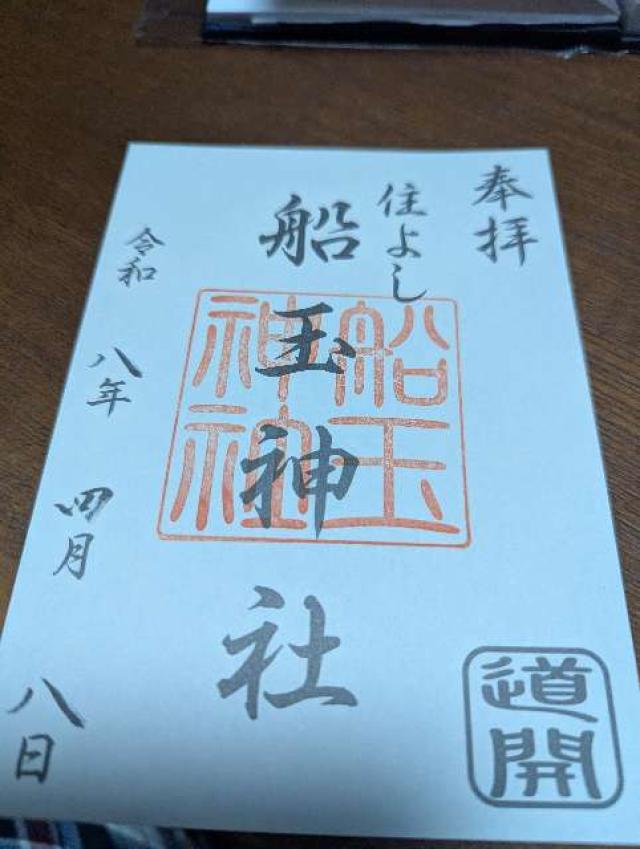 奉拝
住よし
船玉神社
船玉
神社
令和八年四月八日
道開